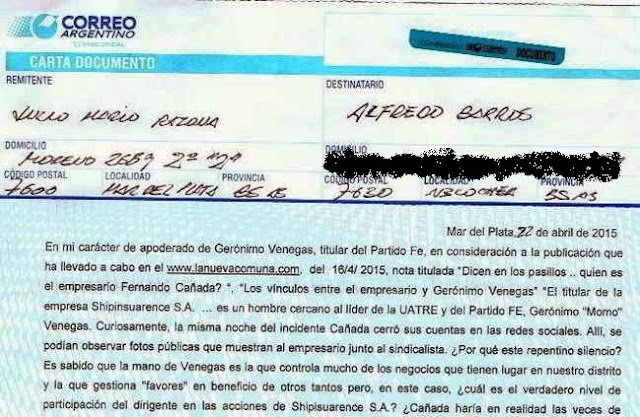 CORREO
ARGENTINO
CORREO OFICIAL
DOCUMENTO
CARTA DOCUMENTO
REMITENTE
DESTINATARIO
Mario
ALFREDO BARROS
DOMICILIO
DOMICILIO
MORENO 2689 2º "J"
CÓDIGO POSTAL LOCALIDAD PROVINCIA
CÓDIGO POSTAL LOCALIDAD PROVINCIA
7600 MAR DEL PLATA BS AS
7630 NECOCHEA BS AS
Mar del Plata, 22 de abril de 2015
En mi carácter de apoderado de Gerónimo Venegas, titular del Partido Fe, en consideración a la publicación que
ha llevado a cabo en el www.lanuevacomuna.com, del 16/4/ 2015, nota titulada "Dicen en los pasillos .. quien es
el empresario Fernando Cañada? ", "Los vínculos entre el empresario y Gerónimo Venegas" "El titular de la
empresa Shipinsuarence S.A. ... es un hombre cercano al líder de la UATRE y del Partido FE, Gerónimo "Momo"
Venegas. Curiosamente, la misma noche del incidente Cañada cerró sus cuentas en las redes sociales. Allí, se
podían observar fotos públicas que muestran al empresario junto al sindicalista. ¿Por qué este repentino silencio?
Es sabido que la mano de Venegas es la que controla mucho de los negocios que tienen lugar en nuestro distrito
y la que gestiona "favores" en beneficio de otros tantos pero, en este caso, ¿cuál es el verdadero nivel de
participación del dirigente en las acciones de Shipisuarence S.A.? ¿Cañada haría en realidad las veces de